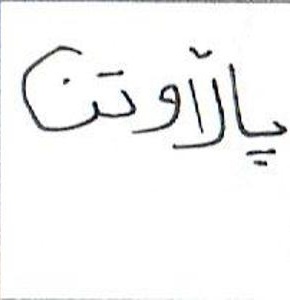 پاڵاوتن